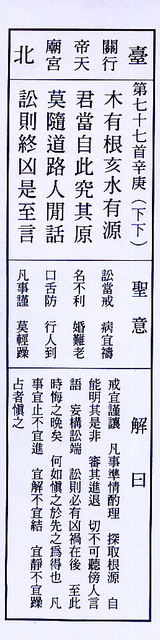 臺北
關帝廟
行天宮
第七十七首辛庚（下下）
木有根亥水有源
君當自此究其原
莫隨道路人閒話
訟則終凶是至言
聖意
訟當戒 病宜禱
名不利 婚難老
口舌防 行人到
凡事謹 莫輕躁
解曰
戒宜謹讓 凡事準情酌理 探取根源 自
能明其是非 審其進退 切不可聽傍人言
語 妄構訟端 訟則必有凶禍在後 至此
時悔之晚矣 何如慎之於先之為得也 凡
事宜止不宜進 宜解不宜結 宜靜不宜躁
占者慎之